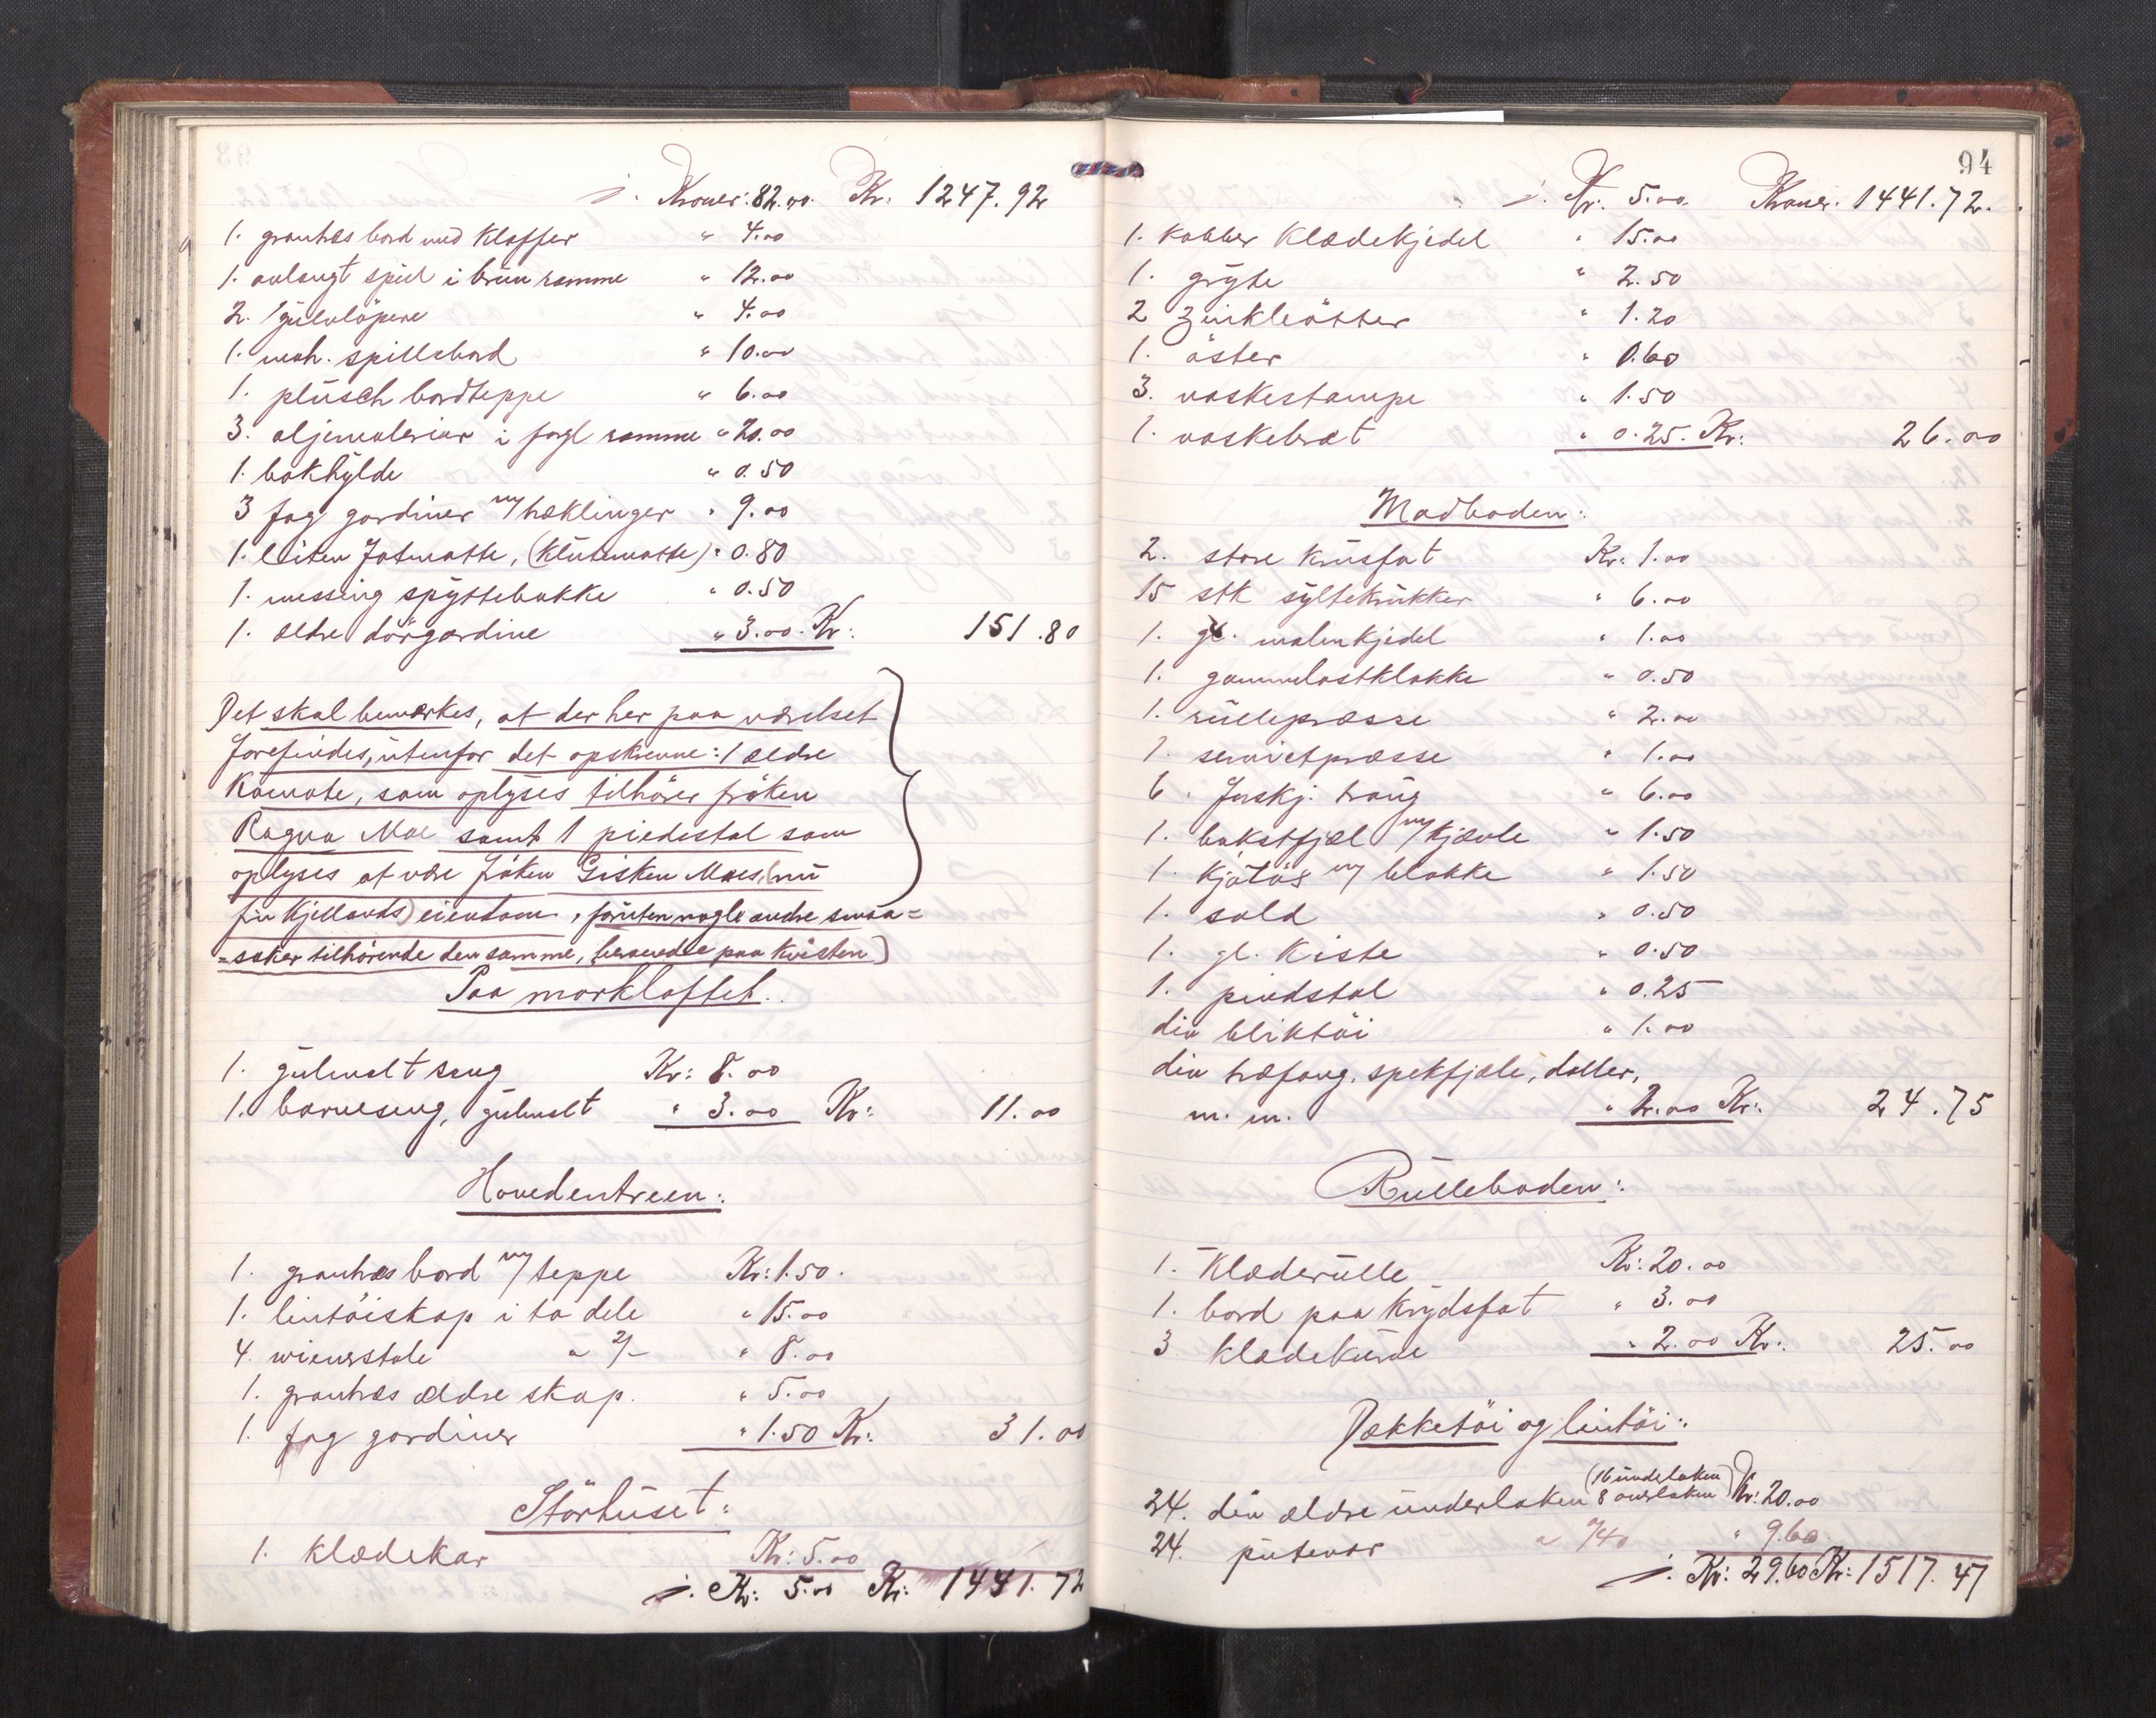 ÷. Kroner: 82.00. Kr: 1247.92
1. grantræs bord med klaffer " 4.00
1. avlangt speil i brun ramme " 12.00
2. gulvlöpere " 4.00
1. mah. spillebord " 10.00
1. plüsch bordteppe " 6.00
3. oljemalerier i forgl ramme " 20.00
1. bokhylde " 0.50
3 fag gardiner m/ hæklinger " 9.00
1. liten Fotmatte, (Klutematte) " 0.80
1. messing spyttebakke " 0.50
1. ældre dörgardine " 3.00. Kr: 151.80
Det skal bemærkes, at der her paa værelset
forefindes, utenfor det opskrevne: 1 ældre
Komode, som oplyses tilhörer fröken
Ragna Moe samt 1 piedestal som
oplyses at være fröken Gisken Moes, (nu
fru Kjellands) eiendom, foruten nogle andre smaa=
=saker tilhörende den samme, beroende paa kvisten)
Paa mörkloftet.
1. gulmalt seng Kr: 8.00
1. barneseng, gulmalt " 3.00 Kr: 11.00
Hovedentreen:
1. grantræs bord m/ teppe Kr: 1.50.
1. lintöiskap i to dele " 15.00
4. wienerstole a 2/- " 8.00
1. grantræs ældre skap. " 5.00
1. fag gardiner " 1.50 Kr: 31.00
Störhuset:
1. klædekar Kr: 5.00
÷. Kr: 5.00 Kr: 1441.72
94
÷. Kr. 5.00. Kroner. 1441.72.
1. kobber klædekjedel " 15.00
1. gryte " 2.50
2 zinkbötter " 1.20
1. öster " 0.60
3. vaskestampe " 1.50
1. vaskebræt " 0.25. Kr: 26.00
Madboden:
2. store krusfat Kr: 1.00
15 stk syltekrukker " 6.00
1. gl. malmkjedel " 1.00
1. gammelostklokke " 0.50
1. rullepræsse " 2.00
1. servietpræsse " 1.00
6. forskj. traug " 6.00
1. bakstfjæl m/ kjævle " 1.50
1. kjötöx m/ blokke " 1.50
1. sold " 0.50
1. gl. kiste " 0.50
1. pindstol " 0.25
div bliktöi " 1.00
div træfang, spekfjæle, daller,
m. m. " 2.00 Kr: 24.75
Rulleboden:
1. Klæderulle Kr: 20.00
1. bord paa krydsfot " 3.00
3 klædekurve " 2.00 Kr: 25.00
Dækketöi og lintöi:
24. div ældre underlaken (16 underlaken 8 overlaken) Kr: 20.00
24. putevar a /40 " 9.60
÷. Kr: 29.60 Kr: 1517.47